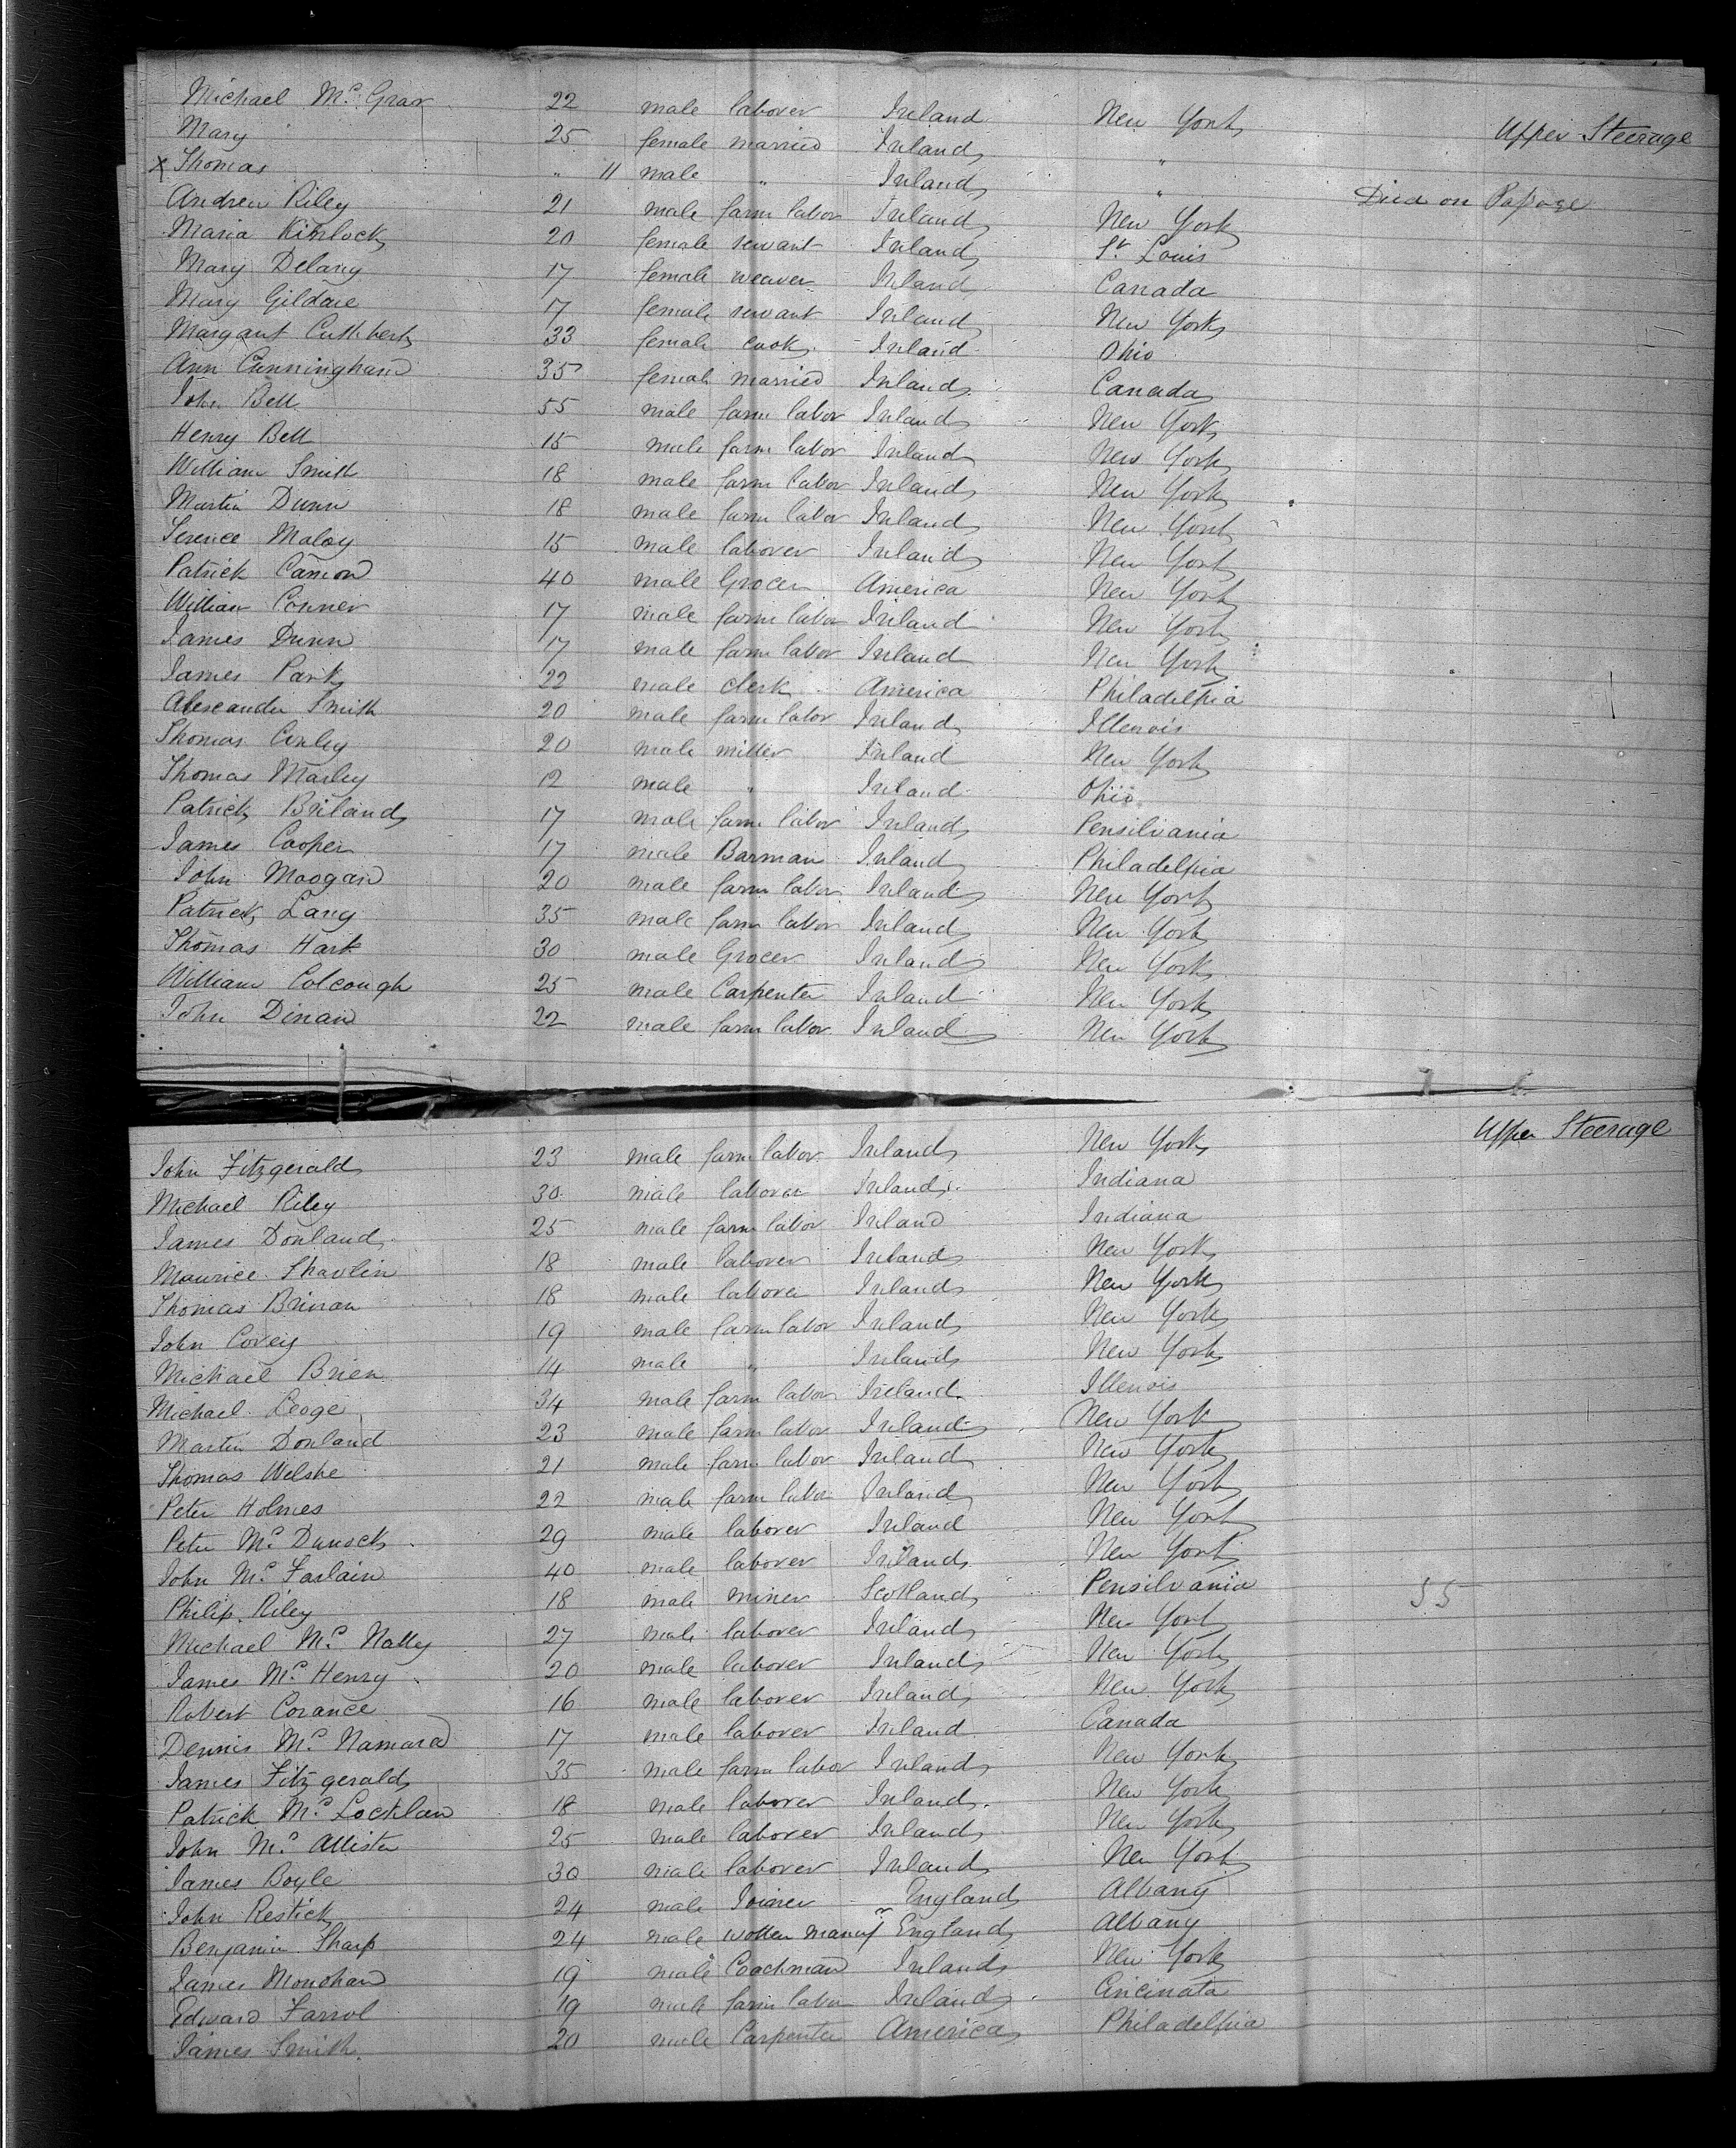 Michael Mc. Grav 22 male laborer Ireland New York Upper Steerage
Mary 25 female married Ireland "
x Thomas " 11 male " Ireland " Died on Passage
Andrew Riley 21 male farm labor Ireland New York
Maria Kinlock 20 female servant Ireland St. Louis
Mary Delany 17 female weaver Ireland Canada
Mary Gildare 17 female servant Ireland New York
Margaret Cuthbert 33 female cook Ireland Ohio
Ann Cunningham 35 female married Ireland Canada
John Bell 55 male farm labor Ireland New York
Henry Bell 15 male farm labor Ireland New York
William Smith 18 male farm labor Ireland New York
Martin Dunn 18 male farm labor Ireland New York
Terence Maloy 15 male laborer Ireland New York
Patrick Camon 40 male Grocer America New York
William Conner 17 male farm labor Ireland New York
James Dunn 17 male farm labor Ireland New York
James Park 22 male clerk America Philadelphia
Alexander Smith 20 male farm labor Ireland Illenois
Thomas Conley 20 male miller Ireland New York
Thomas Marley 12 male " Ireland Ohio
Patrick Briland 17 male farm labor Ireland Pensilvania
James Cooper 17 male Barman Ireland Philadelphia
John Moogan 20 male farm labor Ireland New York
Patrick Lang 35 male farm labor Ireland New York
Thomas Hart 30 male Grocer Ireland New York
William Colcough 25 male Carpenter Ireland New York
John Dinan 22 male farm labor Ireland New York
Upper Steerage
John Fitzgerald 23 male farm labor Ireland New York
Michael Riley 30 male laborer Ireland Indiana
James Donland 25 male farm labor Ireland Indiana
Maurice Shavlin 18 male laborer Ireland New York
Thomas Brinan 18 male laborer Ireland New York
John Covey 19 male farm labor Ireland New York
Michael Brien 14 male " Ireland New York
Michael Leoge 34 male farm labor Ireland Illenois
Martin Donland 23 male farm labor Ireland New York
Thomas Welshe 21 male farm labor Ireland New York
Peter Holmes 22 male farm labor Ireland New York
Peter Mc. 29 male laborer Ireland New York
John Mc. Farlain 40 male laborer Ireland New York
Philip Riley 18 male miner Scotland Pensilvania 55
Michael Mc. Nally 27 male laborer Ireland New York
James Mc. Henry 20 male laborer Ireland New York
Robert Corance 16 male laborer Ireland New York
Dennis Mc. Namara 17 male laborer Ireland Canada
James Fitzgerald 35 male farm labor Ireland New York
Patrick Mc. Locklan 18 male laborer Ireland New York
John Mc. Allister 25 male laborer Ireland New York
James Boyle 30 male laborer Ireland New York
John Restick 24 male Joiner England Albany
Benjamin Sharp 24 male wollen manufr England Albany
James Monohan 19 male Coachman Ireland New York
Edward Farrol 19 male farm labor Ireland Cincinata
James Smith 20 male Carpenter America Philadelphia